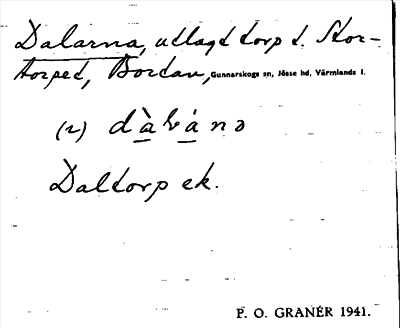 Dalarna, utlagd torp t. Stor-
torpet, Bordan, Gunnarskogs sn, Jösse hd, Värmlands l.
(2) dàlánə
Daltorp ek.
P. O. GRANÉR 1941.